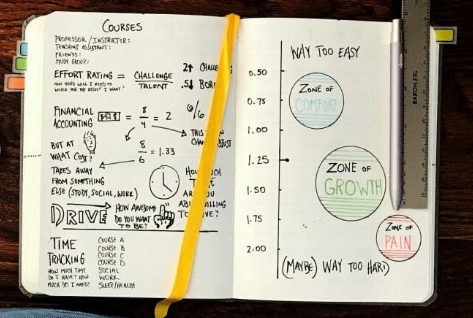 COURSES
PROFESSOR / INSTRUCTOR:
TEACHING ASSISTANT:
FRIENDS:
STUDY GROUP?:
EFFORT RATING = CHALLENGE
TALENT
2↑
.5↓
HOW HARD WILL I NEED TO
WORK FOR THE RESULT I WANT?
FINANCIAL
ACCOUNTING
= 8
4
= 2
8
6
= 1.33
BUT AT
WHAT COST?
TAKES AWAY
FROM SOMETHING
ELSE (STUDY, SOCIAL, WORK)
DRIVE
HOW AWESOME
DO YOU WANT
TO BE?
TIME
TRACKING
HOW MUCH TIME
DO I HAVE? HOW
MUCH DO I NEED?
COURSE A
COURSE B
COURSE C
COURSE D
SOCIAL
WORK
SLEEP/HEALTH
WAY TOO EASY
0.50
0.75
1.00
1.25
1.50
1.75
2.00
ZONE OF
COMFORT
ZONE OF
GROWTH
ZONE OF
PAIN
(MAYBE) WAY TOO HARD
BARON FIG